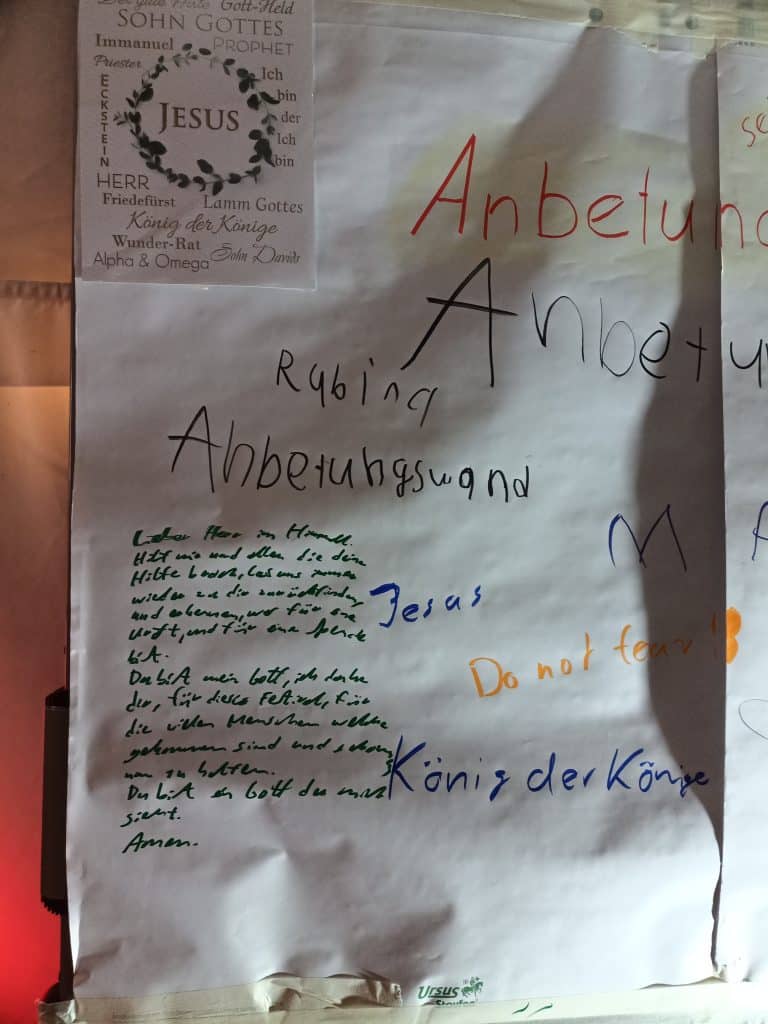 Der gute Hirte Gott-Held
SOHN GOTTES
Immanuel PROPHET
Priester
ECKSTEIN
JESUS
Ich
bin
der
Ich
bin
HERR
Friedefürst Lamm Gottes
König der Könige
Wunder-Rat Sohn Davids
Alpha & Omega
Anbetung
Anbetu
Rabina
Anbetungswand
Lieber Herr im Himmel.
Hilf mir und allen die deine
Hilfe lass uns immer
wieder zu dir zurückfinden
und erkennen, wer für eine
und für eine
bist.
Du bist mein Gott, ich danke
dir, für dieses Festival, für
die vielen Menschen welche
gekommen sind und
Du bist ein Gott der mich
sieht.
Amen.
Jesus
M
Do not fear!
König der Könige
Ursus